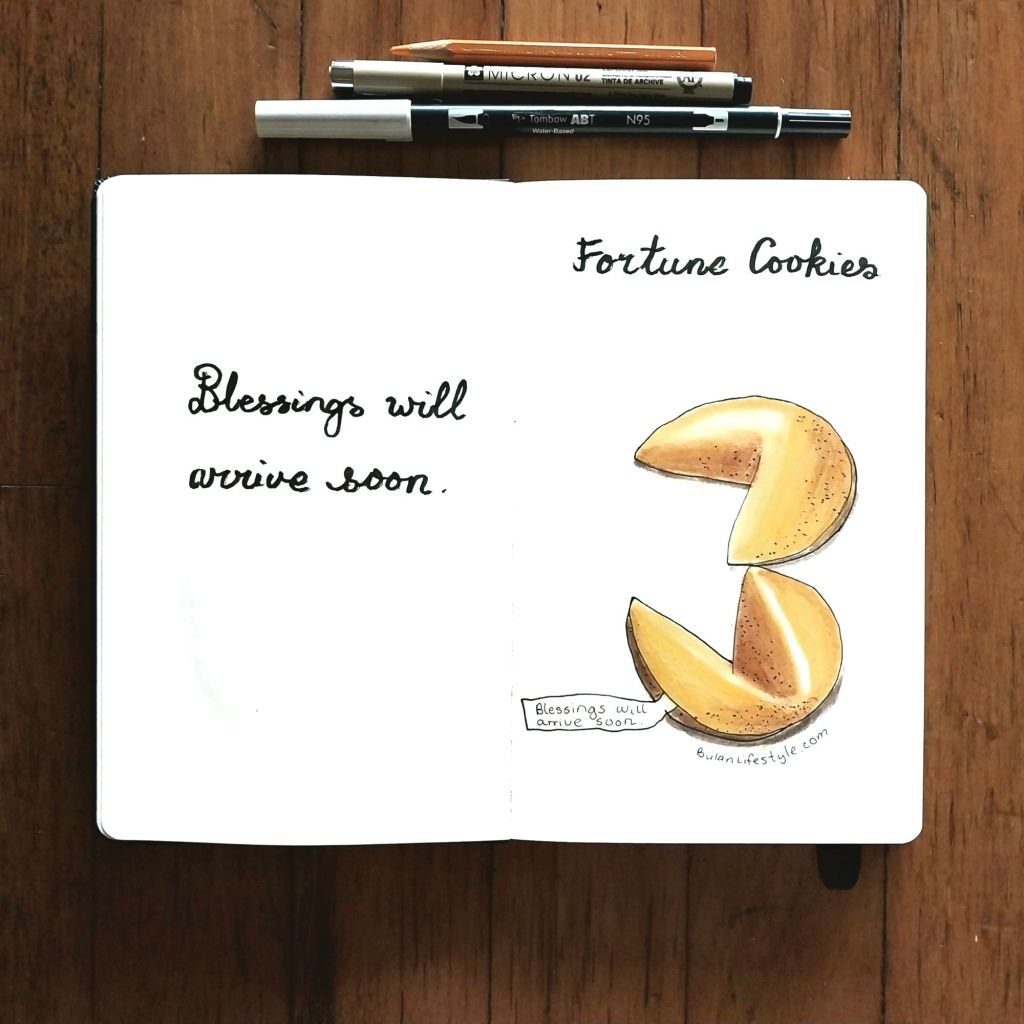 MICRON 02
TINTA DE ARCHIVE
Tombow ABT N95
Water-Based
Fortune Cookies
Blessings will
arrive soon.
Blessings will
arrive soon.
BulanLifestyle.com